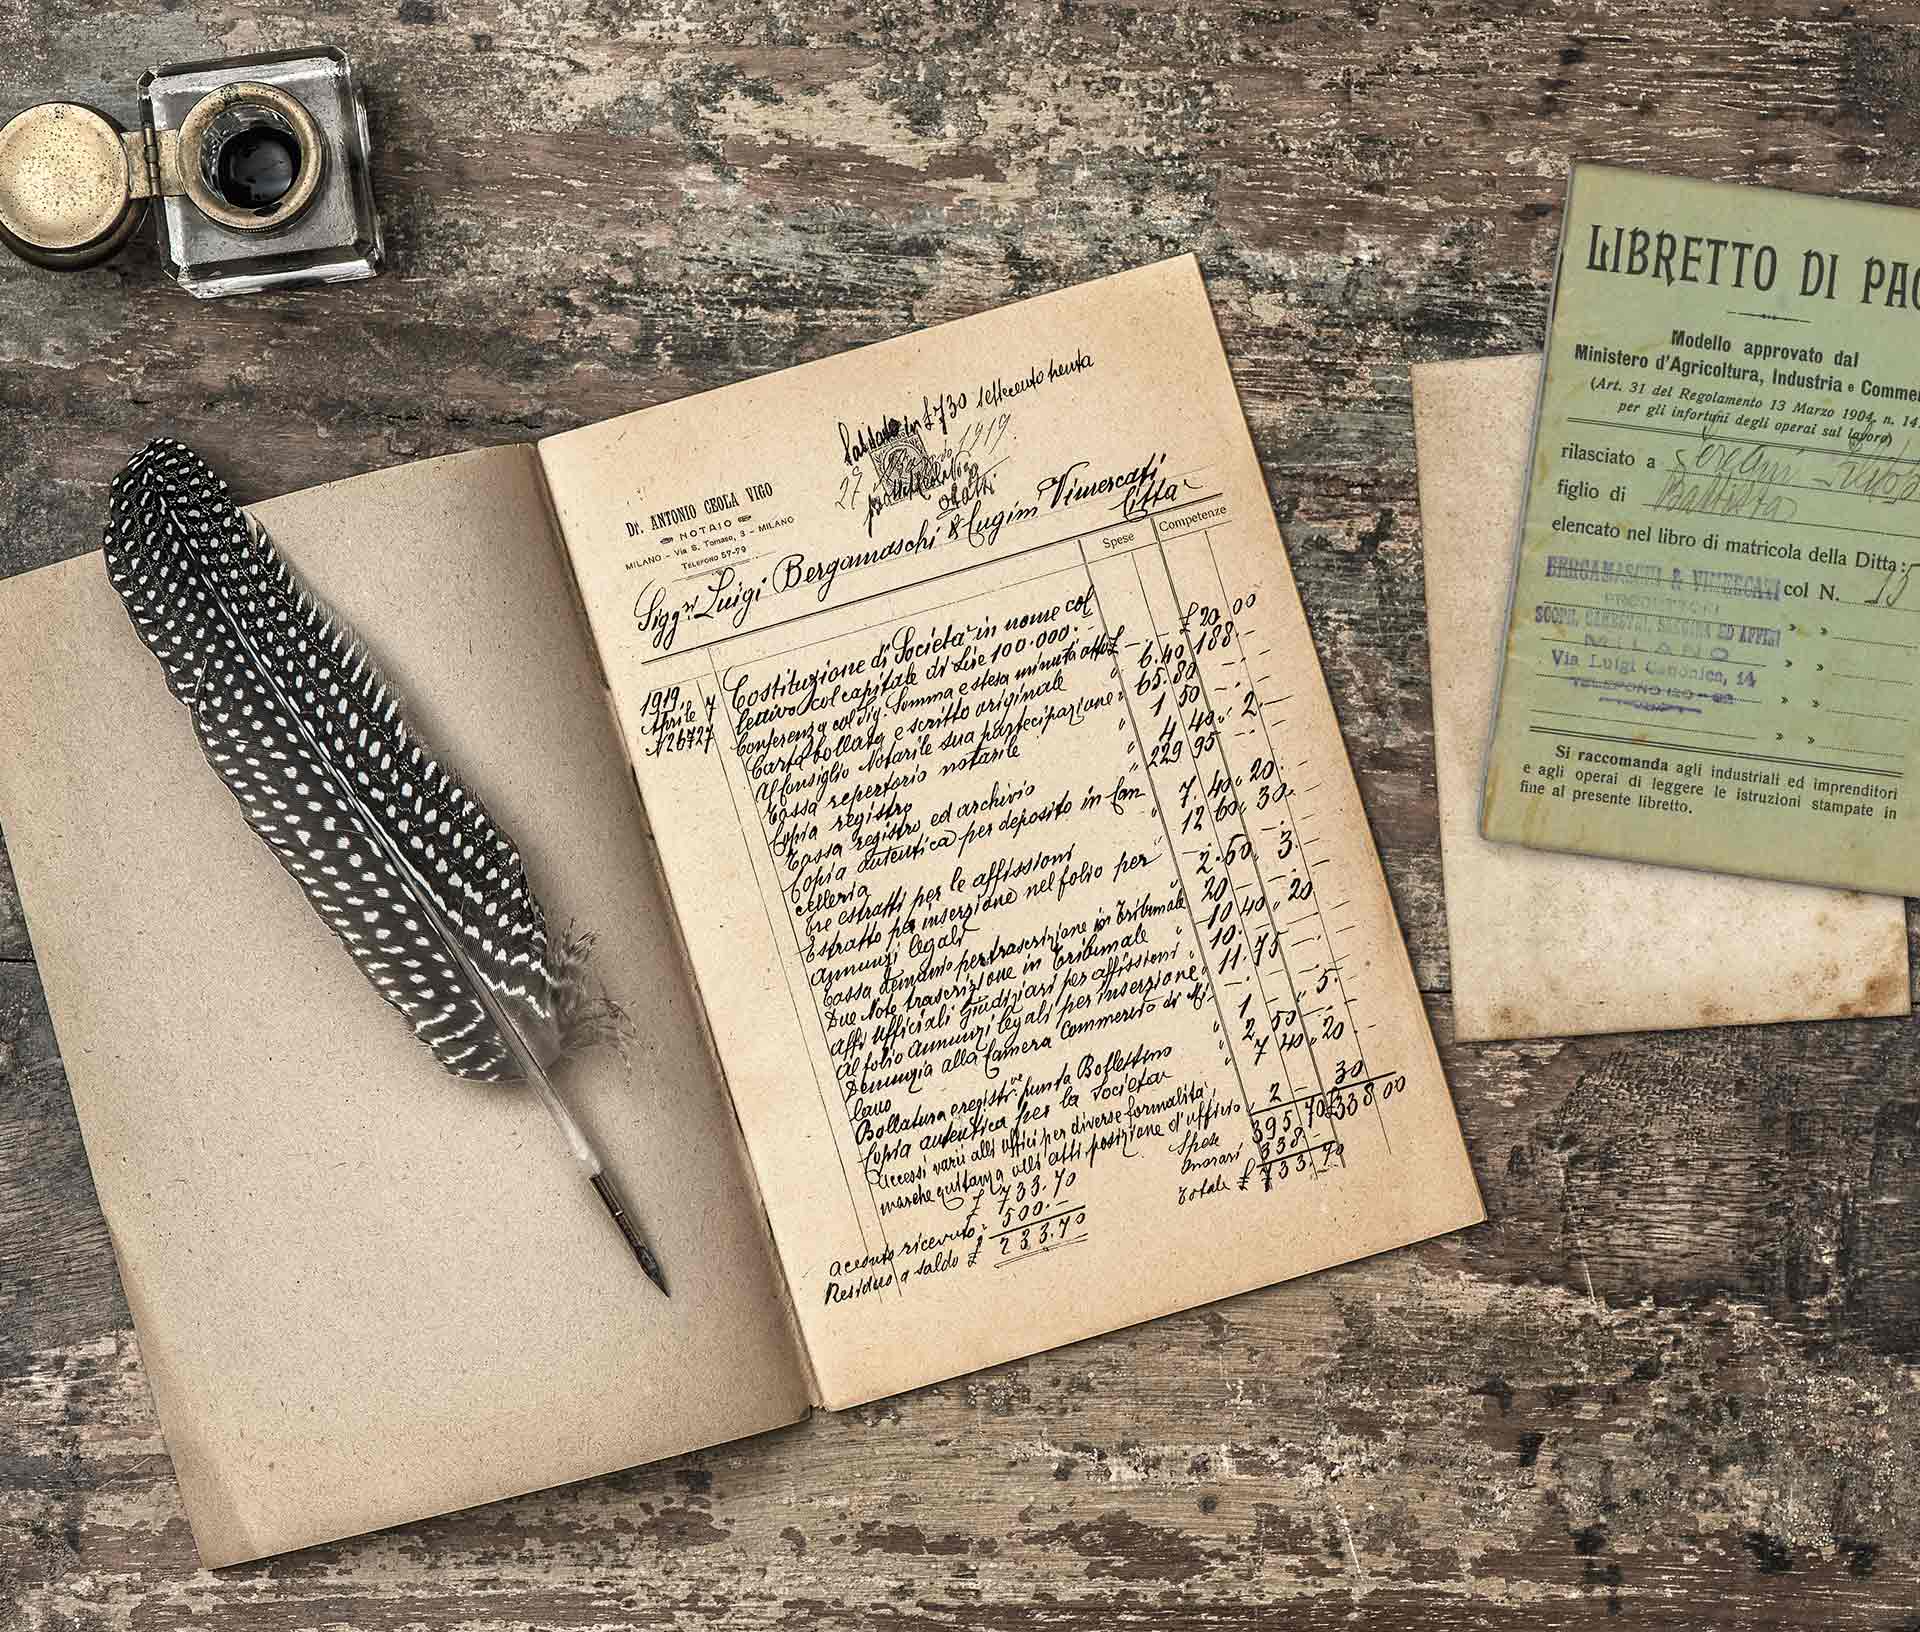 Saldato in £ 730 settecento trenta
27 1919.
Dr. ANTONIO CEOLA VIGO
NOTAIO
MILANO - Via S. Tomaso, 3 - MILANO
TELEFONO 57-79
Sigg.ri Luigi Bergamaschi & Eugim Vimercati
Città
Spese Competenze
1919.
Aprile 7
N 26727
Costituzione di Società in nome col
lettivo col capitale di Lire 100.000.- £ 20 00
Conferenza col Sig. Somma e stesa minuta atto £ -.- 188.-
Carta bollata e scritto originale 6.40
Al Consiglio Notarile sua partecipazione " 65.80 -.-
Tassa repertorio notarile " 1 50 -.-
Copia registro " 4 40 " 2.-
Tassa registro ed archivio " 229 95 -.-
Copia autentica per deposito in Can
celleria " 7.40 " 20.-
Tre estratti per le affissioni " 12 60 " 30.-
Estratto per inserzione nel folio per
annunzi legali 2.60 " 3.-
Tassa demanio per trascrizione in Tribunale " 20 - -.-
Due Note trascrizione in Tribunale " 10 40 " 20
Affi ufficiali giudiziari per affissioni " 10.- -.-
Al folio annunzi legali per inserzione " 11.75 -.-
Denunzia alla Camera Commercio di Mi-
lano " 1 - " 5.-
Bollatura e registr.ne punta Bollettino " 2 50 -.-
Copia autentica per la Società " 7 40 " 20
Accessi varii alli uffici per diverse formalità 30
marche quitanza alli atti posizione d'ufficio " 2 -
395 70 £ 338 00
Spese
Onorari 338.-
Totale £ 733.70
£ 733.70
Acconto ricevuto: " 500.-
Residuo a saldo £ 233.70
LIBRETTO DI PAG
Modello approvato dal
Ministero d'Agricoltura, Industria e Commer
(Art. 31 del Regolamento 13 Marzo 1904, n. 14
per gli infortuni degli operai sul lavoro)
rilasciato a
figlio di Battista
elencato nel libro di matricola della Ditta:
BERGAMASCHI & VIMERCATI col N. 15
PRODUTTORI
SCOPE, CANESTRI, SAGGINA ED AFFINI
MILANO
Via Luigi Canonica, 14
TELEFONO 120-92
Si raccomanda agli industriali ed imprenditori
e agli operai di leggere le istruzioni stampate in
fine al presente libretto.